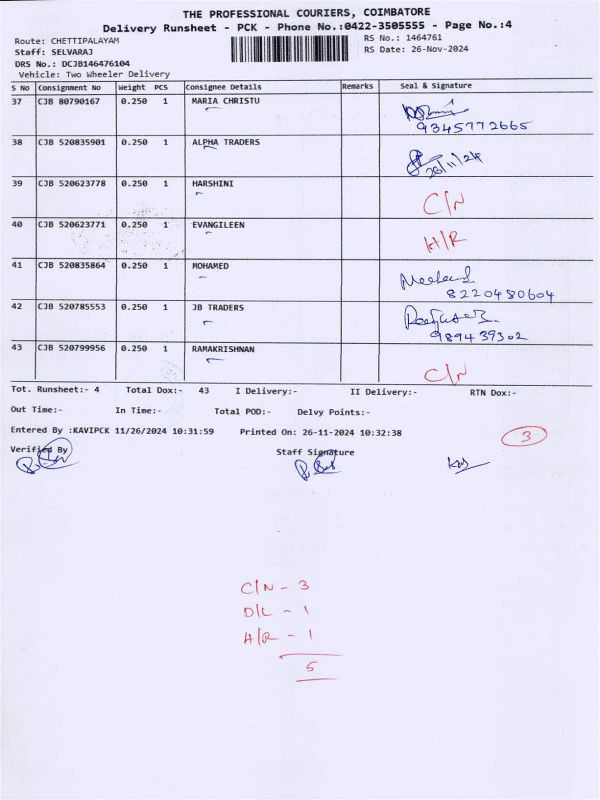 THE PROFESSIONAL COURIERS, COIMBATORE
Delivery Runsheet - PCK - Phone No.:0422-3505555 - Page No.:4
Route: CHETTIPALAYAM RS No.: 1464761
Staff: SELVARAJ RS Date: 26-Nov-2024
DRS No.: DCJB146476104
Vehicle: Two Wheeler Delivery
S No Consignment No Weight PCS Consignee Details Remarks Seal & Signature
37 CJB 80790167 0.250 1 MARIA CHRISTU
9345772665
38 CJB 520835901 0.250 1 ALPHA TRADERS
26/11/24
39 CJB 520623778 0.250 1 HARSHINI
C/N
40 CJB 520623771 0.250 1 EVANGILEEN
H/R
41 CJB 520835864 0.250 1 MOHAMED
8220480604
42 CJB 520785553 0.250 1 JB TRADERS
989439302
43 CJB 520799956 0.250 1 RAMAKRISHNAN
C/N
Tot. Runsheet:- 4 Total Dox:- 43 I Delivery:- II Delivery:- RTN Dox:-
Out Time:- In Time:- Total POD:- Delvy Points:-
Entered By :KAVIPCK 11/26/2024 10:31:59 Printed On: 26-11-2024 10:32:38
3
Verified By Staff Signature
C/N - 3
D/L - 1
H/R - 1
5